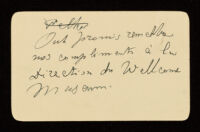 Ont promis remettre
nos compliments à la
Direction du Wellcome
Museum.